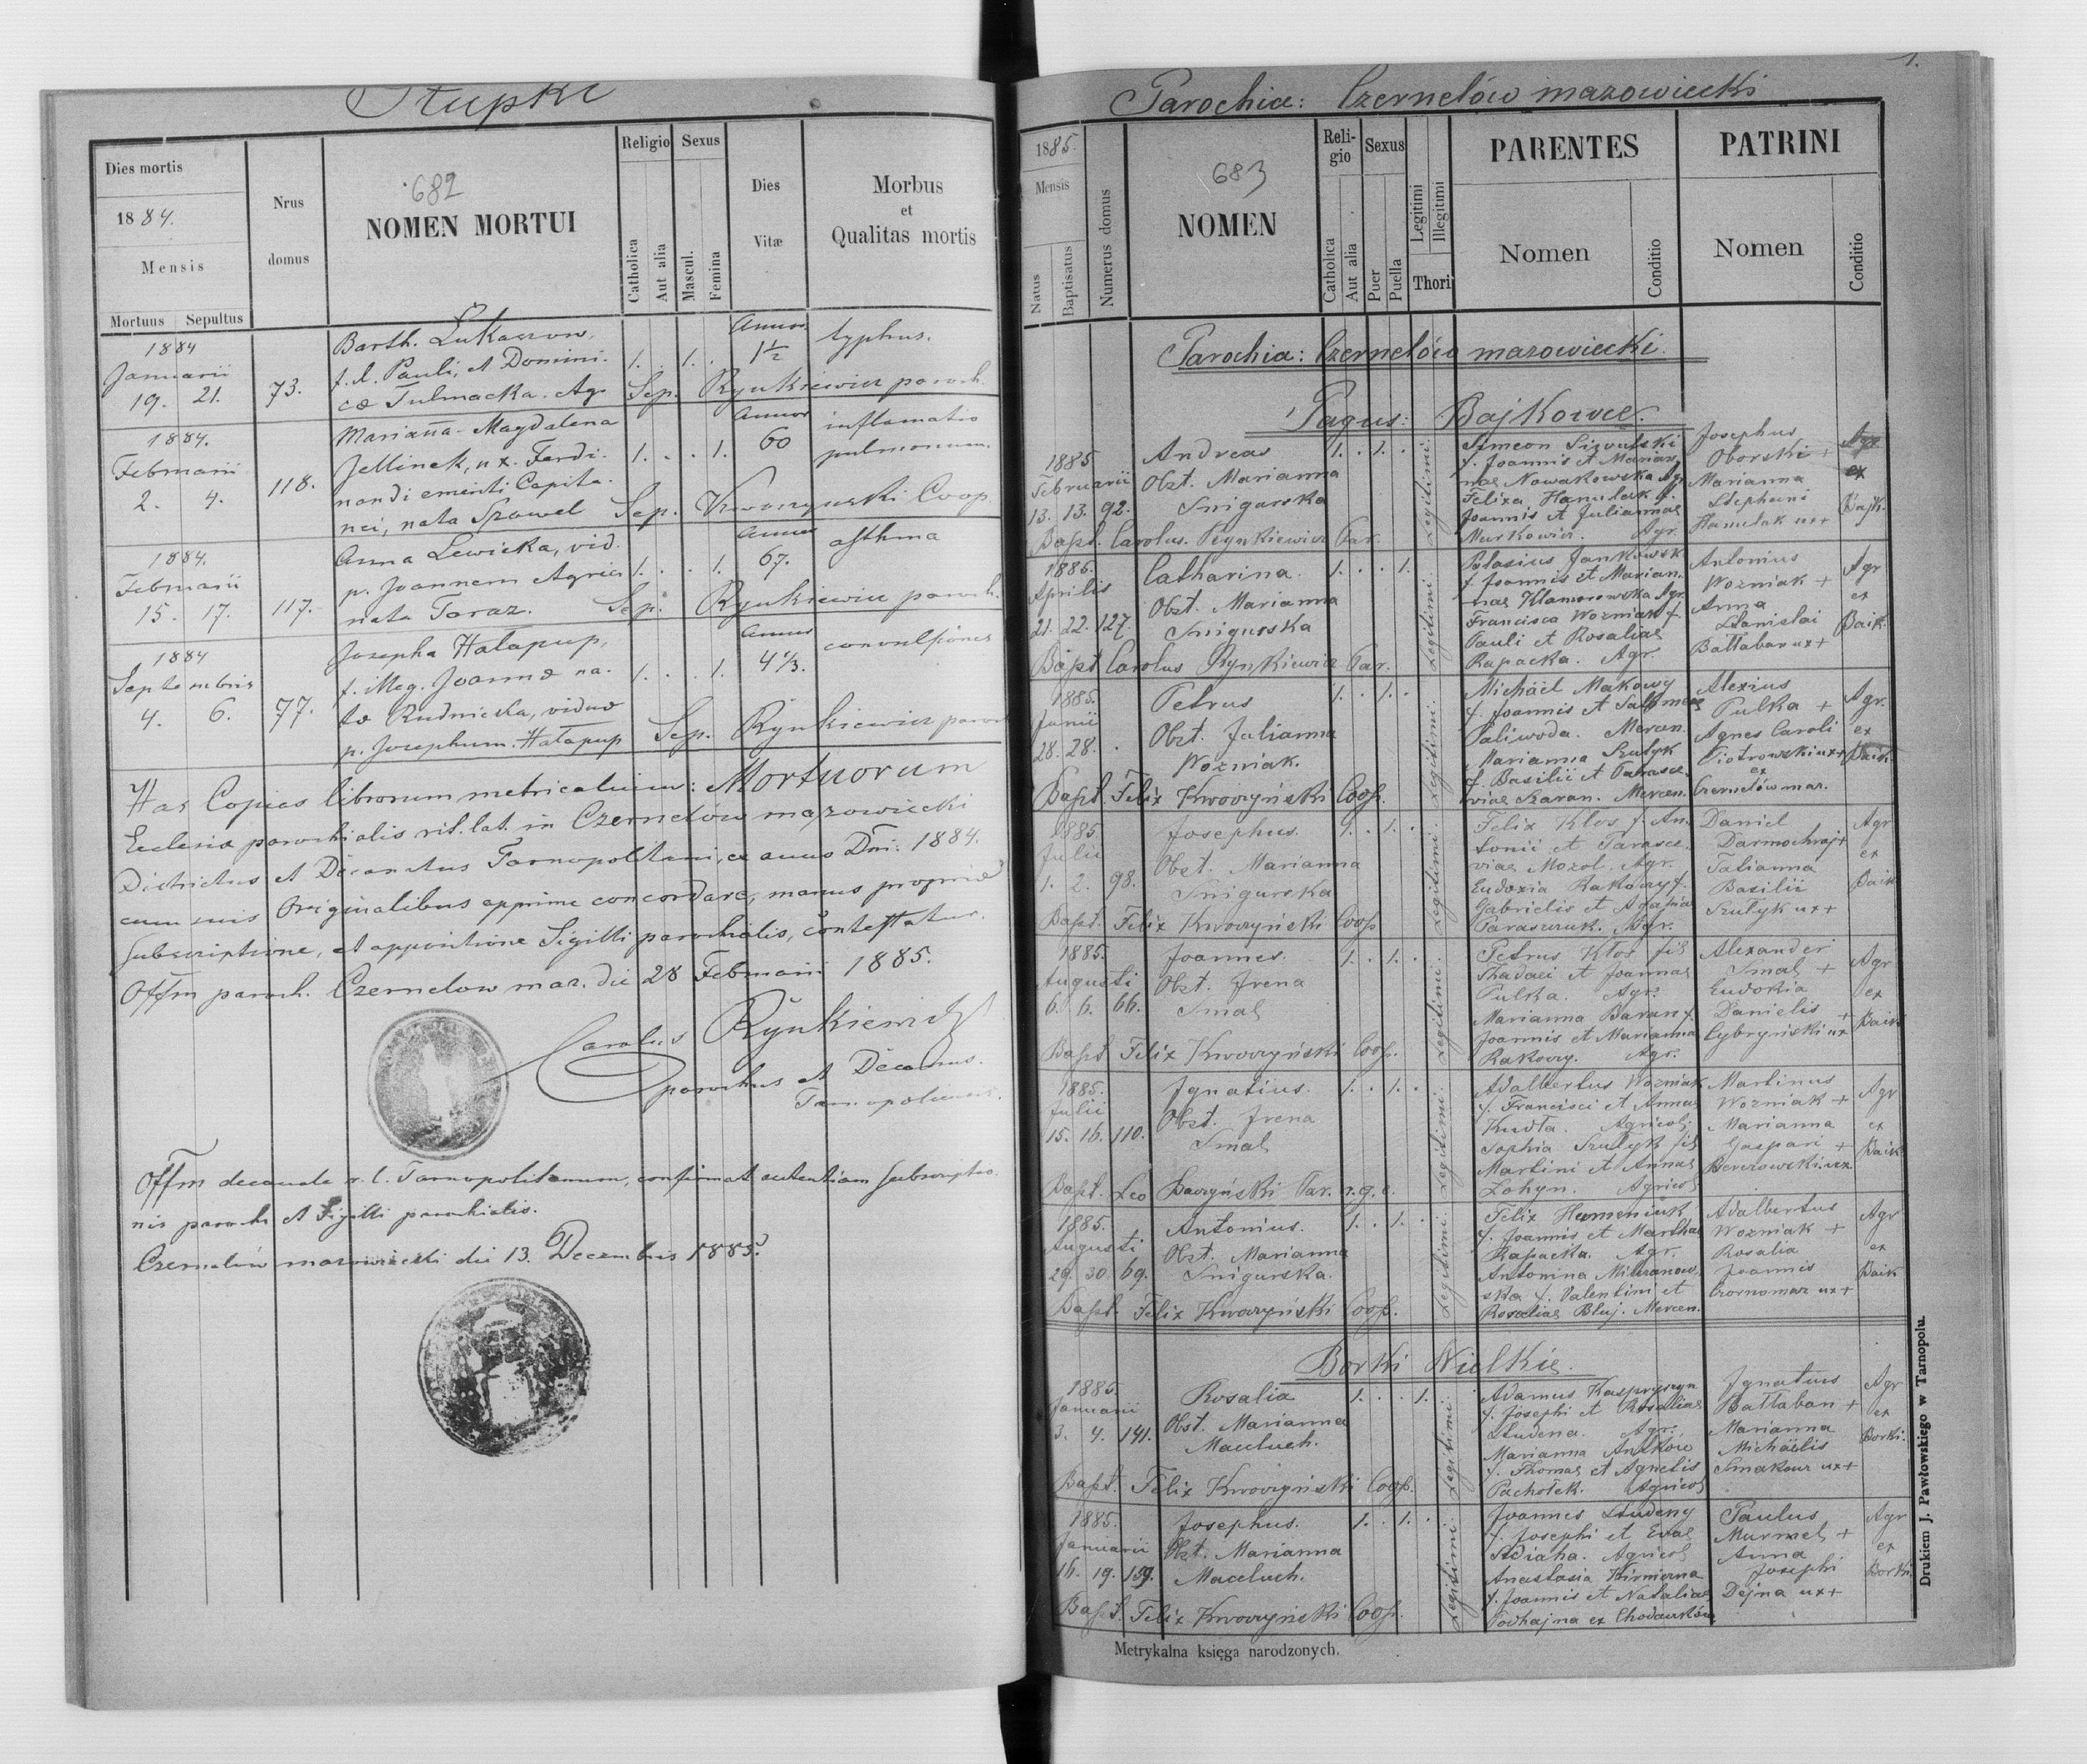 Stupki
Dies mortis
1884.
Mensis
Mortuus Sepultus
Nrus
domus
682
NOMEN MORTUI
Religio
Catholica
Aut alia
Sexus
Mascul.
Femina
Dies
Vitæ
Morbus
et
Qualitas mortis
1884
Januarii
19. 21.
73.
Barth. Łukaszow,
f. l. Pauli, et Domini-
cæ Tulmacka. Agr
1. . 1. .
Annor.
1½
typhus.
Sep. Rynkiewicz paroch.
1884.
Februarii
2. 4.
118.
Marianna-Magdalena
Jellinek, ux. Ferdi-
nandi emeriti Capita-
nei, nata Szawel
1. . . 1.
Annor
60
inflamatio
pulmonum.
Sep. Kwoczyński Coop.
1884.
Februarii
15. 17.
117.
Anna Lewicka, vid.
p. Joannem Agricol
nata Taraz.
1. . . 1.
Annor
67.
asthma
Sep. Rynkiewicz paroch.
1884
Septembris
4. 6.
77.
Josepha Hałapup,
f. illeg. Joannæ na-
tæ Rudnicka, viduæ
p. Josephum Hałapup
1. . . 1.
Annor
4⅓.
convulsiones
Sep. Rynkiewicz paroch
Has Copias librorum metricalium: Mortuorum
Ecclesiæ parochialis rit. lat. in Czernelów mazowiecki
Districtus et Decanatus Tarnopoliensi, ex anno Dni: 1884.
cum suis Originalibus apprime concordare, manus propriæ
subscriptione, et appositione Sigilli parochialis, contestatur.
Offm paroch. Czernelow maz. die 28 Februarii 1885.
Carolus Rynkiewicz
parochus et Decanus.
Tarnopoliensis.
Offm decanale r. l. Tarnopolitanum, confirmat autentiam subscriptio-
nis parochi et Sigilli parochialis.
Czernelów mazowiecki die 13. Decembris 1885.
1.
Parochia: Czernelów mazowiecki
1885.
Mensis
Natus
Baptisatus
Numerus domus
683
NOMEN
Reli-
gio
Catholica
Aut alia
Sexus
Puer
Puella
Legitimi
Illegitimi
Thori
PARENTES
Nomen
Conditio
PATRINI
Nomen
Conditio
Parochia: Czernelów mazowiecki.
Pagus: Bajkowce.
1885
Februarii
13. 13. 92.
Andreas
Obst. Marianna
Snigurska
1. . 1. .
Legitimi.
Simeon
f. Joannis et Marian-
nae Nowakowska Agr.
Felixa Hanulak f.
Joannis et Juliannae
Murkowicz. Agr.
Josephus
Oborski +
Marianna
Stephani
Hanulak ux +
Agr
ex
Bajk.
Bapt. Carolus. Rynkiewicz Par.
1885.
Aprilis
21. 22. 127.
Catharina.
Obst. Marianna
Snigurska
1. . . 1.
Legitimi.
Blasius Jankowsk
f. Joannis et Marian-
nae Klamorowska Agr.
Francisca Wozniak f.
Pauli et Rosaliae
Rapacka. Agr.
Antonius
Wozniak +
Anna
Stanislai
Bałłaban ux +
Agr
ex
Baik.
Bapt Carolus Rynkiewicz Par.
1885.
Junii
28. 28. .
Petrus
Obst. Julianna
Wozniak.
1. . 1. .
Legitimi.
Michael Makowy
f. Joannis et Salomeae
Paliwoda. Mercen.
Marianna Szutyk
f. Basilii et Parasce-
viae Szaran. Mercen.
Alexius
Pulka +
Agnes Caroli
Piotrowski ux +
ex
Czernelów maz.
Agr.
ex
Baik.
Bapt. Felix Kwoczyński Coop.
1885.
Julii
1. 2. 98.
Josephus.
Obst. Marianna
Snigurska
1. . 1. .
Legitimi.
Felix Kłos f. An-
tonii et Parasce-
viae Mozol. Agr.
Eudoxia Rakoczy f.
Gabrielis et Agapia
Paraszczuk. Agr.
Daniel
Darmochwaj +
Tatianna
Basilii
Szutyk ux +
Agr
ex
Baik
Bapt. Felix Kwoczyński Coop
1885.
Augusti
6. 6. 66.
Joannes.
Obst. Irena
Smal
1. . 1. .
Legitimi.
Petrus Kłos fil
Thadaei et Joannae
Pulka. Agr.
Marianna Baran f.
Joannis et Marianna
Rakoczy. Agr.
Alexander
Smal +
Eudokia
Danielis +
Cybryński ux
Agr
ex
Baik
Bapt Felix Kwoczyński Coop.
1885.
Julii
15. 16. 110.
Ignatius.
Obst. Irena
Smal
1. . 1. .
Legitimi.
Adalbertus Wozniak
f. Francisci et Annae
Kudła. Agricol.
Sophia Szutyk fil
Martini et Annae
Lohyn. Agricol
Martinus
Wozniak +
Marianna
Gaspari +
Berezowski ux
Agr
ex
Baik
Bapt. Leo Baczyński Par. r. g. c.
1885.
Augusti
29. 30. 69.
Antonius.
Obst. Marianna
Snigurska.
1. . 1. .
Legitimi.
Felix Humeniuk
f. Joannis et Marthae
Rapacka. Agr.
Antonina Milzanow-
ska f. Valentini et
Rosaliae Bluj. Mercen.
Adalbertus
Wozniak +
Rosalia
Joannis
Czornomaz ux +
Agr
ex
Baik
Bapt Felix Kwoczyński Coop.
Borki Wielkie.
1885
Januarii
3. 4. 141.
Rosalia
Obst. Marianna
Maceluch.
1. . . 1.
Legitimi.
Adamus Kaspryszyn
f. Josephi et Rosaliae
Studena. Agr.
Marianna Antków
f. Thomae et Agnetis
Pachołek. Agricol
Ignatius
Bałłaban +
Marianna
Michaëlis
Smakouz ux +
Agr
ex
Borki.
Bapt. Felix Kwoczyński Coop.
1885.
Januarii
16. 19. 159.
Josephus.
Obst. Marianna
Maceluch.
1. . 1. .
Legitimi.
Joannes Studeny
f. Josephi et Evae
Agricol
Anastasia
f. Joannis et Nataliae
Podhajna ex Chodaczków
Paulus
Murmel +
Anna
Josephi
Dejna ux +
Agr
ex
Borki
Bapt. Felix Kwoczyński Coop.
Metrykalna księga narodzonych.
Drukiem J. Pawłowskiego w Tarnopolu.